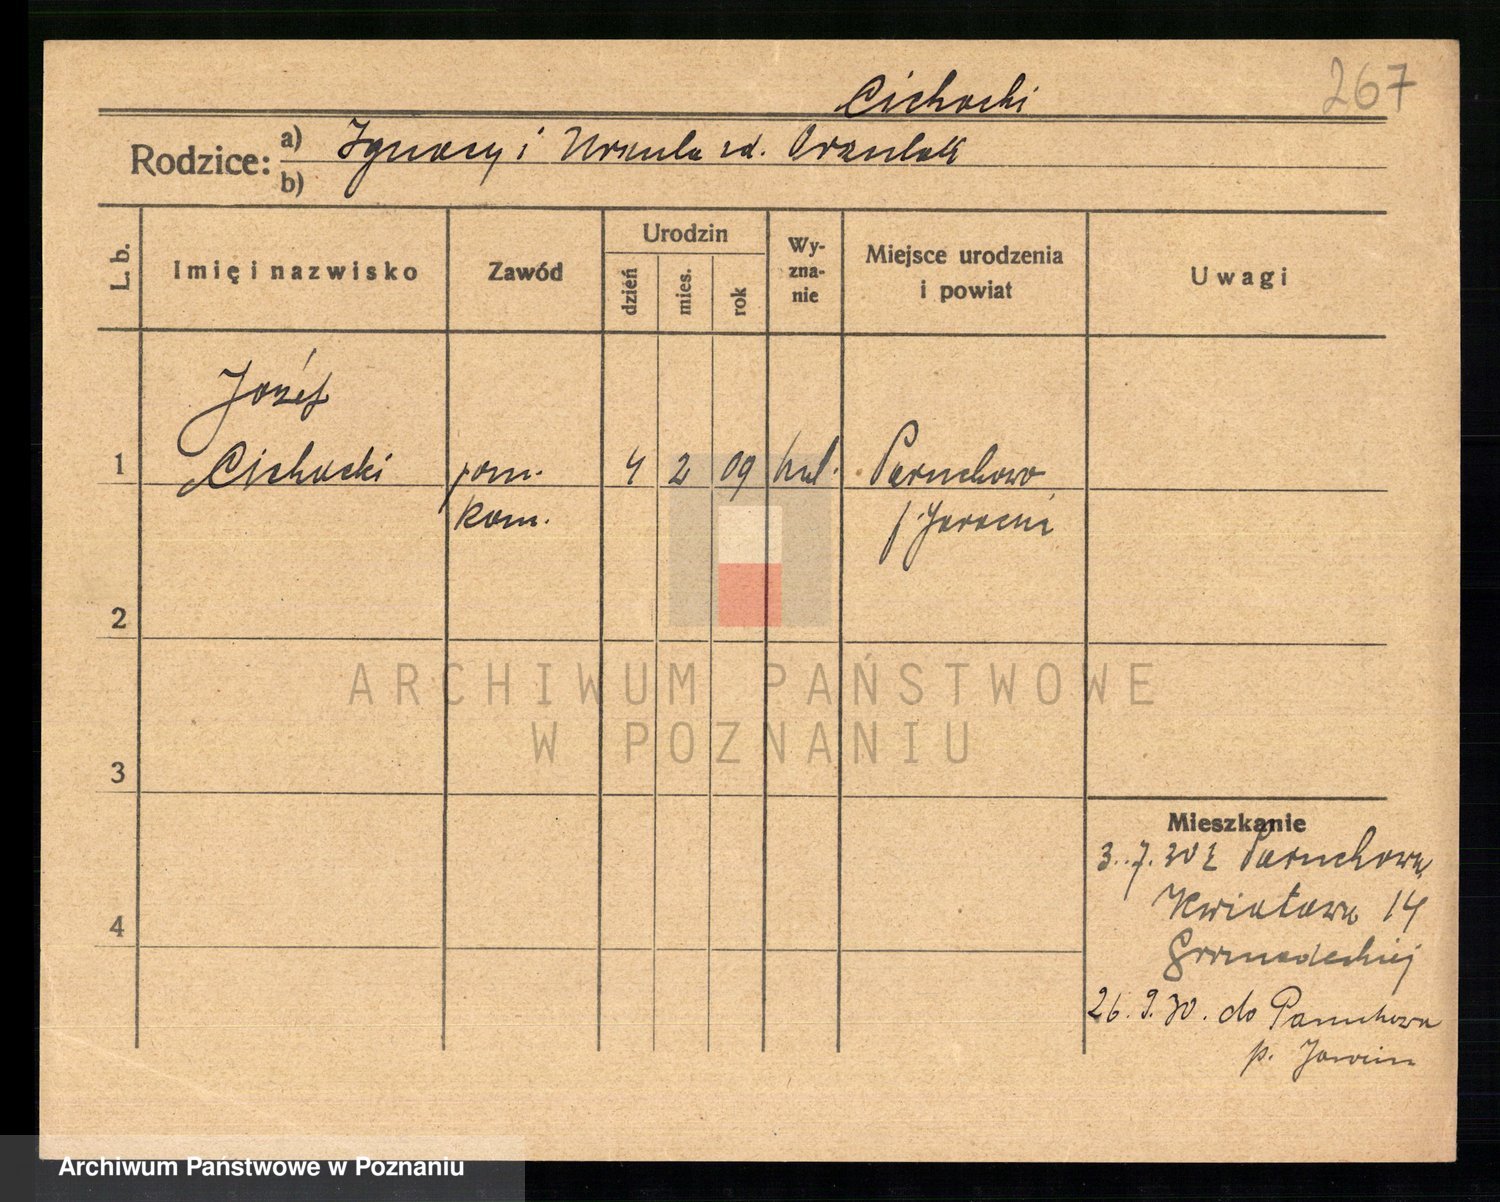 267
Cichocki
Rodzice: a) Ignacy i Urszula zd. Orzulak
b)
L. b.
Imię i nazwisko
Zawód
Urodzin
dzień
mies.
rok
Wy-
zna-
nie
Miejsce urodzenia
i powiat
Uwagi
Józef
1 Cichocki pom. 4 2 09 kat. Paruchowo
kom. p. Jarocin
2
3
4
ARCHIWUM PAŃSTWOWE
W POZNANIU
Mieszkanie
3.7.30 z Paruchowa
Kwiatowa 14
26.9.30. do Paruchowa
p. Jarocin
Archiwum Państwowe w Poznaniu